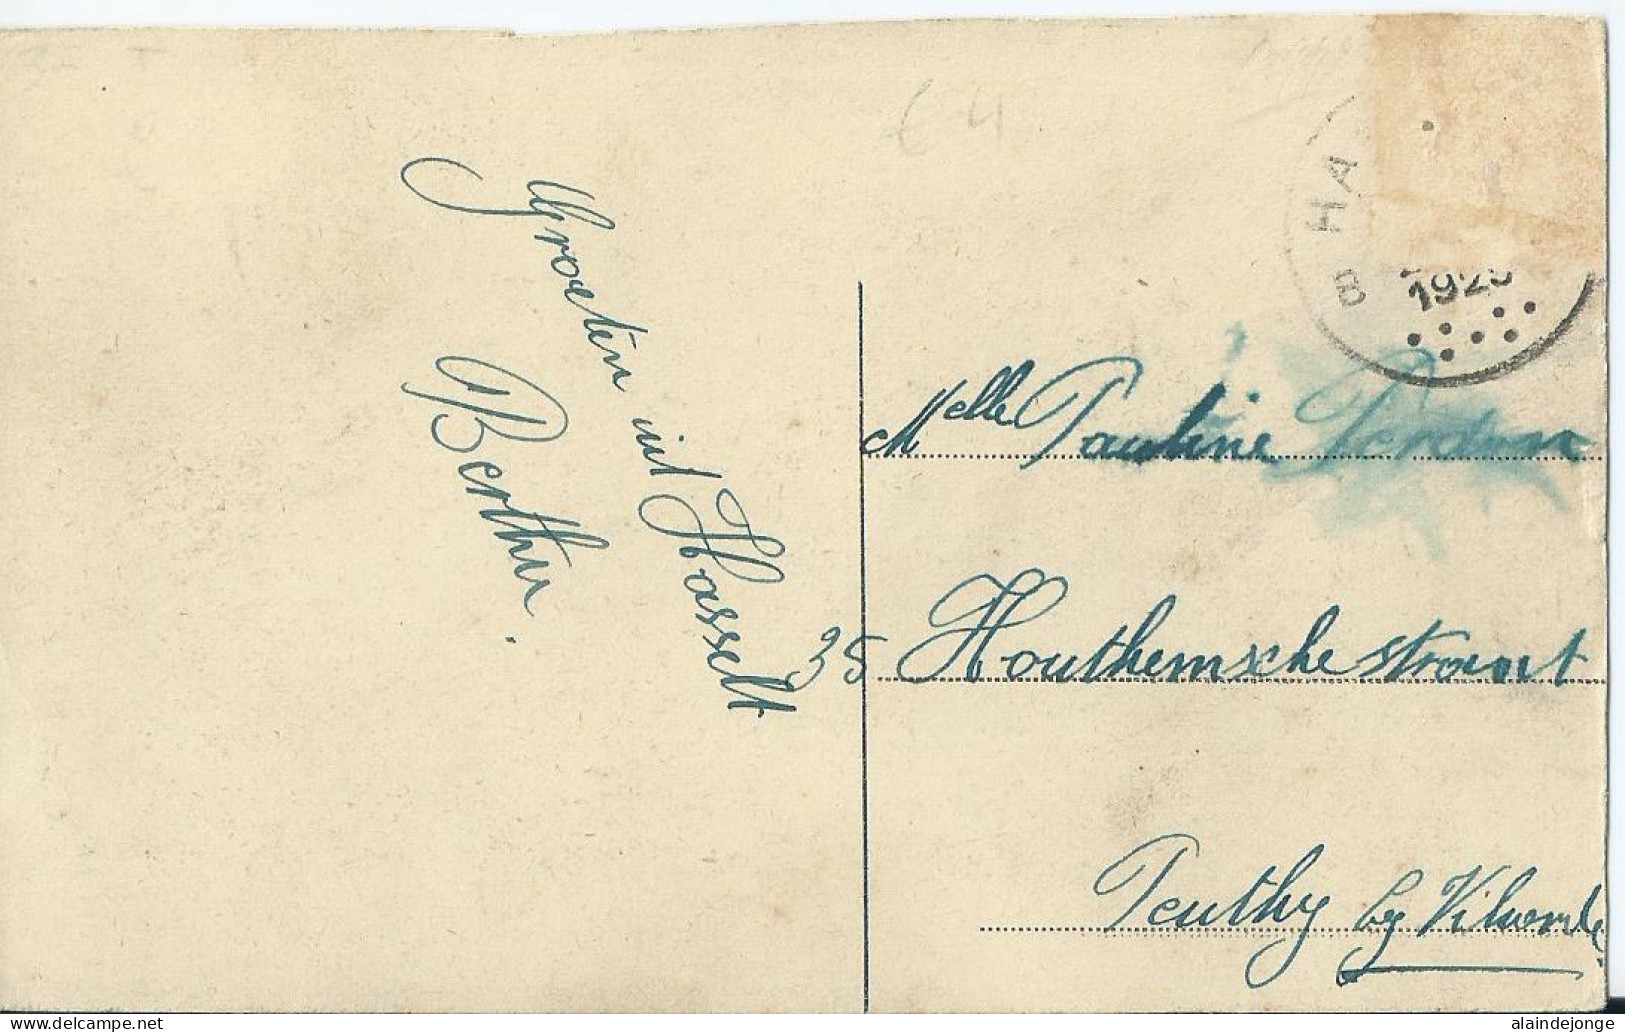 € 4
Groeten uit Hasselt
Berthe.
B HA
1925
Melle Pauline
35 Houthemschestraat
Peuthy by Vilvorde
alaindejonge